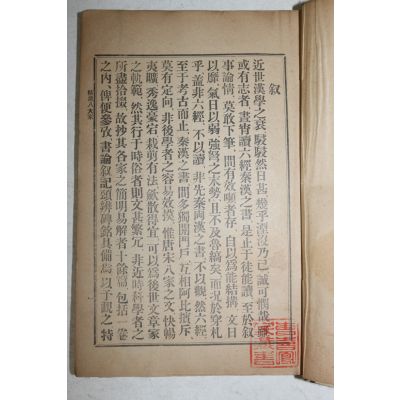 叙
近世漢學之衰駸駸然日甚幾乎湮沒乃已誠可慨哉雖
或有志者晝甞讀六經秦漢之書是止于徒能讀至於叙
事論情莫敢下筆間有效顰者存自以爲能結搆文日
以靡氣日以弱強弩之末勢且不及魯縞矣而況於穿札
乎蓋非六經不以讀非先秦兩漢之書不以觀然六經
至于考古而止秦漢之書間多獨開門戶互相阿比擯斥
莫有定向非後學者之容易效摸惟唐宋八家之文快暢
夷曠秀逸豪宕裁剪有法歛散得宜可以爲後世文章家
之軌範然其行于時俗者則文甚繁冗非近時科學者之
所盡拾掇故抄其各家之簡明易解者十餘篇包括一卷
之內俾便參攷書論叙記頌辨碑銘具備焉以予觀之特
精選八大家